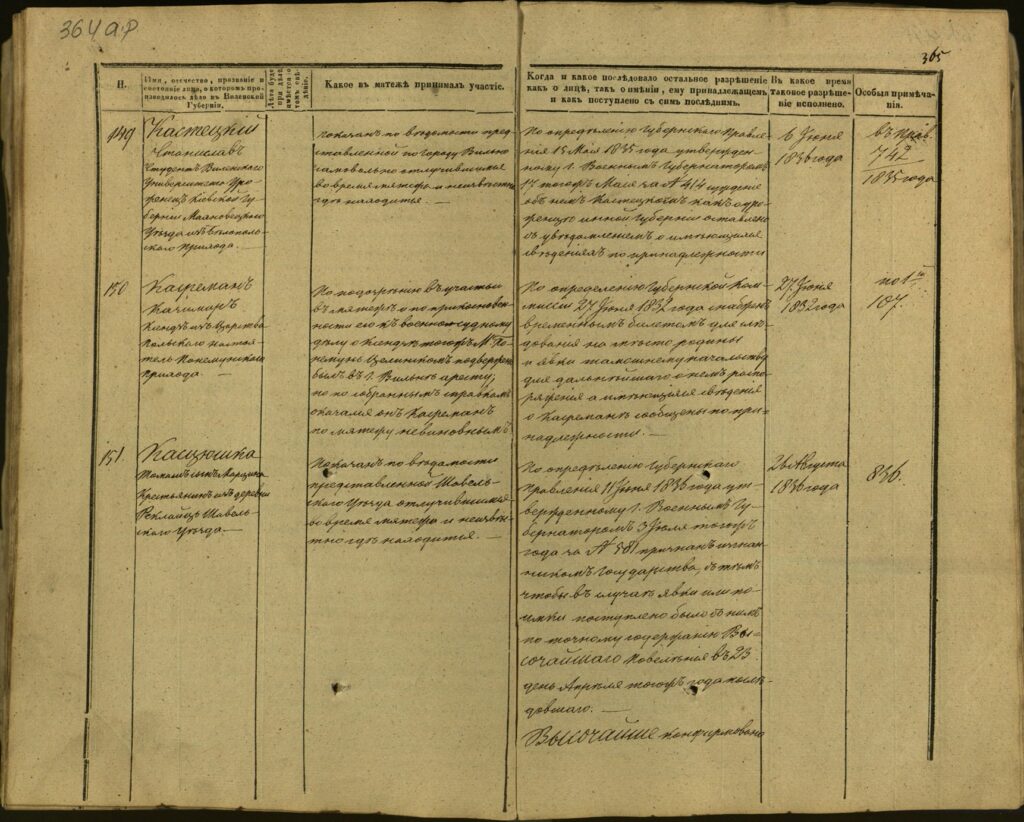 364 а.р
365
Н.
Имя, отечество, прозваніе и
состояніе лица, о которомъ про-
изводилось дѣло въ Виленской
Губерніи.
Лѣта буде
при дѣлѣ
имѣется о
томъ свѣ-
дѣніе.
Какое въ матежѣ принималъ участіе.
Когда и какое послѣдовало остальное разрѣшеніе
какъ о лицѣ, такъ о имѣніи, ему принадлежащемъ
и какъ поступлено съ симъ послѣднимъ.
Въ какое время
таковое разрѣше-
ніе исполнено.
Особыя примѣча-
нія.
149
Кастецкій
Станиславъ
Студентъ Виленскаго
Университета Уро-
женецъ Кіевской Гу-
берніи
Уѣзда
скаго прихода.
Показанъ по вѣдомости пред-
ставленной по Городу Вильно
самовольно отлучившимся
во время мятежа и неизвѣстно
гдѣ находится. —
По опредѣленію Губернскаго Правле-
нія 15 Мая 1835 года утвержден-
ному Г. Военнымъ Губернаторомъ
17 тогожъ Маія за № 414 сужденіе
объ немъ Кастецкомъ какъ о уро-
женцѣ иной Губерніи оставлено
съ увѣдомленіемъ о имѣющихся
свѣденіяхъ по принадлежности
6 Іюня
1836 года
742
1835 года
150.
Кагреманъ
Ксендзъ изъ Царства
Польскаго настоя-
тель Понемунскаго
прихода. —
По подозрѣнію въ участіи
въ мятежѣ и по прикосновен-
ности его къ военно судному
дѣлу о Ксендзѣ тогожъ
подверженъ
былъ въ г. Вильнѣ аресту,
но по собраннымъ справкамъ
оказался онъ Кагреманъ
по мятежу невиновнымъ.
По опредѣленію Губернской Ком-
мисіи 27 Іюня 1832 года снабженъ
временнымъ билетомъ для слѣ-
дованія на мѣсто родины
и явки тамошнему начальству
для дальнѣйшаго о немъ распо-
ряженія а имѣющіяся свѣденія
о Кагреманѣ сообщены по при-
надлежности. —
27 Іюня
1832 года
107.
151.
Касцюшка
Томашъ сынъ
Крестьянинъ изъ деревни
Шавель-
скаго Уѣзда —
Показанъ по вѣдомости
представленной Шавель-
скаго Уѣзда отлучившимся
во время мятежа и неизвѣ-
стно гдѣ находится. —
По опредѣленію Губернскаго
Правленія 11 Іюня 1836 года ут-
вержденному Г. Военнымъ Гу-
бернаторомъ 3 Іюля тогожъ
года за № 581 признанъ изгнан-
никомъ Государства, съ тѣмъ
чтобы въ случаѣ явки или по-
имки поступлено было съ нимъ
по точному содержанію Вы-
сочайшаго повелѣнія въ 23
день Апрѣля тогожъ года послѣ-
довшаго. —
Высочайше конфирмовано
26 Августа
1836 года
836.